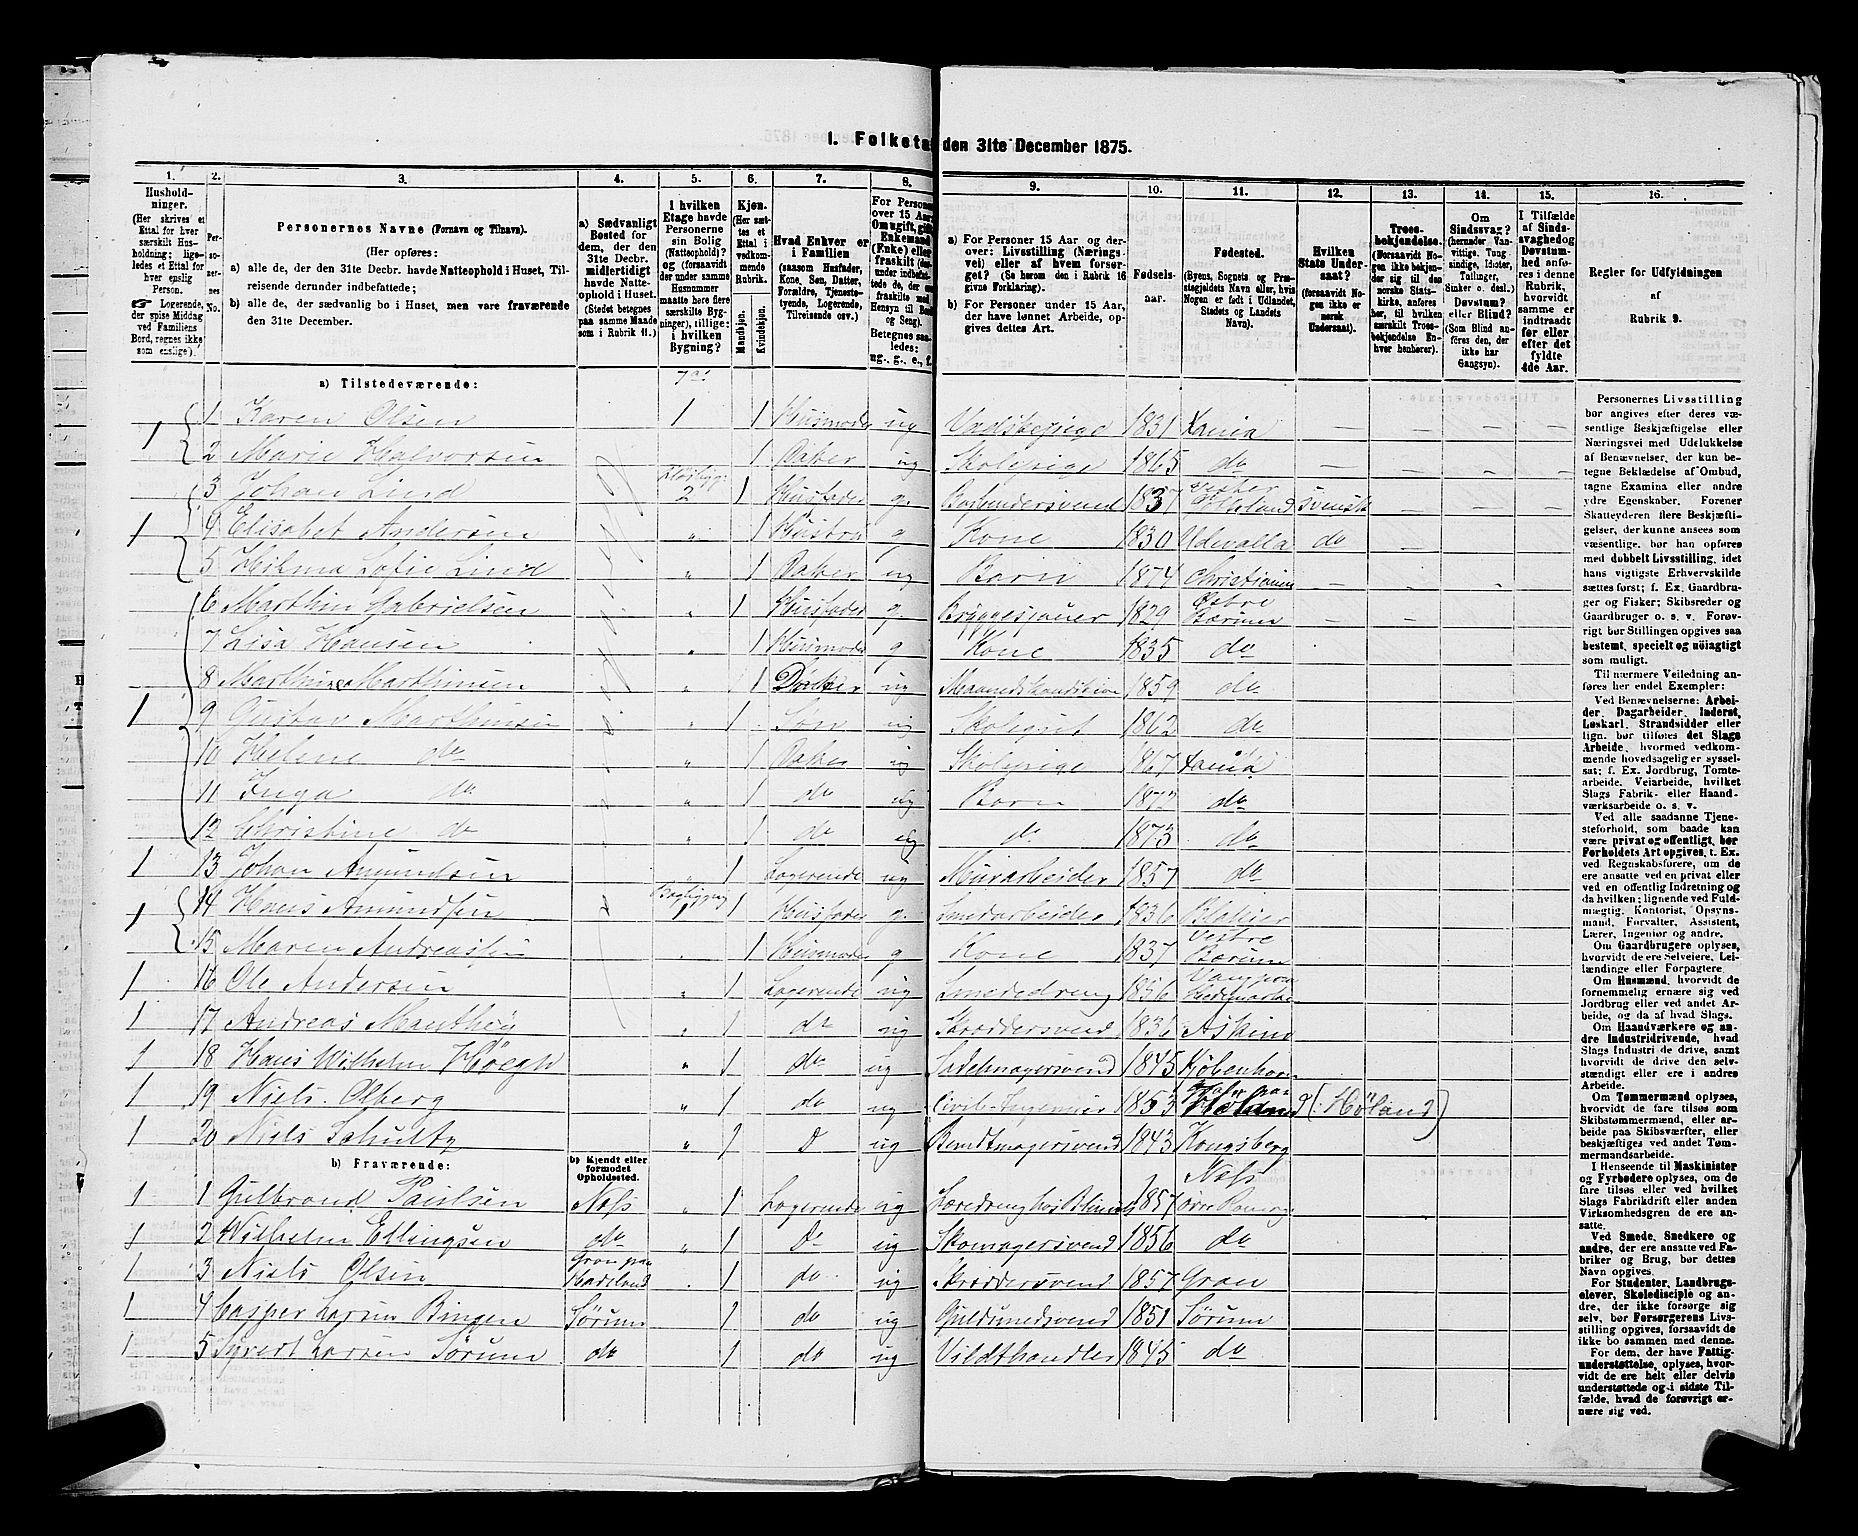 I. Folketa den 31te December 1875.
1. 2. 3. 4. 5. 6. 7. 8. 9. 10. 11. 12. 13. 14. 15. 16.
Hushold-
ninger.
(Her skrives et
Ettal for hver
særskilt Hus-
holdning; lige-
ledes et Ettal for
hver enslig
Person.
☞ Logerende,
der spise Middag
ved Familiens
Bord, regnes ikke
som enslige).
Per-
soner-
nes
No.
Personernes Navne (Fornavn og Tilnavn).
(Her opføres:
a) alle de, der den 31te Decbr. havde Natteophold i Huset, Til-
reisende derunder indbefattede;
b) alle de, der sædvanlig bo i Huset, men vare fraværende
den 31te December.
a) Sædvanligt
Bosted for
dem, der den
31te Decbr.
midlertidigt
havde Natte-
ophold i Huset.
(Stedet betegnes
paa samme Maade
som i Rubrik 11.)
I hvilken
Etage havde
Personerne
sin Bolig
(Natteophold)?
og (forsaavidt
der under samme
Husnummer
maatte høre flere
særskilte Byg-
ninger), tillige:
i hvilken
Bygning?
Kjøn.
(Her sæt-
tes et
Ettal i
vedkom-
mende
Rubrik.)
Mandkjøn.
Kvindekjøn.
Hvad Enhver er
i Familien
(saasom Husfader,
Kone, Søn, Datter,
Forældre, Tjeneste-
tyende, Logerende,
Tilreisende osv.)
For Persone
over 15 Aar:
Om ugift, gift
Enkemand
(Enke) eller
fraskilt
Betegnes saa-
ledes:
ug., g., e., f.
a) For Personer 15 Aar og der-
over: Livsstilling (Nærings-
vei) eller af hvem forsør-
get? (Se herom den i Rubrik 16
givne Forklaring).
b) For Personer under 15 Aar,
der have lønnet Arbeide, op-
gives dettes Art.
Fødsels-
aar.
Fødested.
(Byens, Sognets og Præ-
stegjeldets Navn eller, hvis
Nogen er født i Udlandet,
Stedets og Landets
Navn).
Hvilken
Stats Under-
saat?
(forsaavidt No-
gen ikke er
norsk
Undersaat).
Troes-
bekjendelse.
(Forsaavidt No-
gen ikke bekjen-
der sig til den
norske Stats-
kirke, anføres
her, til hvilken
særskilt Troes-
bekjendelse En-
hver henhører).
Om
Sindssvag?
(herunder Van-
vittige, Tung-
sindige, Idioter,
Tullinger,
Sinker o. desl.)
Døvstum?
eller Blind?
(Som Blind an-
føres den, der
ikke har
Gangsyn).
I Tilfælde
af Sinds-
svaghed og
Døvstum-
hed anfø-
res i denne
Rubrik,
hvorvidt
samme er
indtraadt
før eller
efter det
fyldte
4de Aar.
Regler for Udfyldningen
af
Rubrik 9.
a) Tilstedeværende:
1 1 Karen Olsen 1 1 Husmoder ug Vadskepige 1831 Xania — — — —
2 Marie Halvorsen 1 Datter ug Skolepige 1865 do — — — —
1 3 Johan Lind 2 1 Husfader g. Bogbindersvend 1837 svensk —
4 Elisabet Andersen " 1 Hustru g Kone 1830 Udevalla do —
5 Hilma Sofie Lind " 1 Datter ug Barn 1874 Christiania — —
1 6 Marthin Gabrielsen " 1 Husfader g. Bryggesjouer 1829 Østre Bærum — —
7 Lisa Hansen " 1 Husmoder g Kone 1835 do
8 Marthine Marthinsen " 1 Datter ug 1859 do
9 Gustav Marthinsen " 1 Søn ug Skolegut 1862 do
10 Helene do " 1 Datter ug Skolepige 1867 Xania
11 Inga do " 1 do ug Barn 1872 do
12 Christine do " 1 do ug do 1873 do
1 13 Johan Amundsen " 1 Logerende ug Murarbeider 1857 do
1 14 Hans Amundsen Bagbygning 1 1 Husfader g. Smedarbeider 1836 Blakier
15 Maren Andreassen " 1 Husmoder g Kone 1837 Vestre Bærum
1 16 Ole Andersen " 1 Logerende ug Smededreng 1856
1 17 Andreas Manthey " 1 do ug Skræddersvend 1836 Askim
1 18 Hans Wilhelm Høegh " 1 do ug Sadelmagersvend 1845 Kjøbenhavn
1 19 Niels Olberg " 1 do ug Civil-Ingeniør 1853 (: Høland)
1 20 Niels Schultz " 1 D ug Bundtmagersvend 1843 Kongsberg
b) Fraværende:
b) Kjendt eller
formodet
Opholdssted.
1 1 Gulbrand Paulsen Næs " 1 Logerende ug 1857 Næs
1 2 Wilhelm Ellingsen do " 1 Do ug Skomagersvend 1856 do
1 3 Niels Olsen Gran paa Hadeland 1 do ug Skræddersvend 1857 Gran
1 4 Casper Larsen Bingen Sørum 1 do ug Guldsmedsvend 1851 Sørum
1 5 Syvert Larsen Sørum do 1 do ug Vildthandler 1845 do
Personernes Livsstilling
bør angives efter deres væ-
sentlige Beskjæftigelse eller
Næringsvei med Udelukkelse
af Benævnelser, der kun be-
tegne Beklædelse af Ombud,
tagne Examina eller andre
ydre Egenskaber. Forener
Skatteyderen flere Beskjæfti-
gelser, der kunne ansees som
væsentlige, bør han opføres
med dobbelt Livsstilling, idet
hans vigtigste Erhvervskilde
sættes først; f. Ex. Gaardbru-
ger og Fisker; Skibsreder og
Gaardbruger o. s. v. Forøv-
rigt bør Stillingen opgives saa
bestemt, specielt og nøiagtigt
som muligt.
Til nærmere Veiledning an-
føres her endel Exempler:
Ved Benævnelserne: Arbei-
der, Dagarbeider, Inderst,
Løskarl, Strandsidder eller
lign. bør tilføies det Slags
Arbeide, hvormed vedkom-
mende hovedsagelig er syssel-
sat; f. Ex. Jordbrug, Tomte-
arbeide, Veiarbeide, hvilket
Slags Fabrik- eller Haand-
værksarbeide o. s. v.
Ved alle saadanne Tjene-
steforhold, som baade kan
være privat og offentligt, bør
Forholdets Art opgives, t. Ex.
ved Regnskabsførere, om de
ere ansatte ved en privat eller
ved en offentlig Indretning og
da hvilken; lignende ved Fuld-
mægtig, Kontorist, Opsyns-
mand, Forvalter, Assistent,
Lærer, Ingeniør og andre.
Om Gaardbrugere oplyses,
hvorvidt de ere Selveiere, Lei-
lændinge eller Forpagtere.
Om Husmænd, hvorvidt de
fornemmelig ernære sig ved
Jordbrug eller ved andet Ar-
beide, og da af hvad Slags.
Om Haandværkere og an-
dre Industridrivende, hvad
Slags Industri de drive, samt
hvorvidt de drive den selv-
stændigt eller ere i andres
Arbeide.
Om Tømmermænd oplyses,
hvorvidt de fare tilsøs som
Skibstømmermænd, eller ar-
beide paa Skibsværfter, eller
beskjæftiges ved andet Tøm-
mermandsarbeide.
I Henseende til Maskinister
og Fyrbødere oplyses, om de
fare tilsøs eller ved hvilket
Slags Fabrikdrift eller anden
Virksomhedsgren de ere an-
satte.
Ved Smede, Snedkere og
andre, der ere ansatte ved Fa-
briker og Brug, bør dettes
Navn opgives.
For Studenter, Landbrugs-
elever, Skoledisciple og an-
dre, der ikke forsørge sig
selv, bør Forsørgerens Livs-
stilling opgives, forsaavidt de
ikke bo sammen med denne.
For dem, der have Fattig-
understøttelse, oplyses, hvor-
vidt de ere helt eller delvis
understøttede og i sidste Til-
fælde, hvad de forøvrigt er-
nære sig ved.